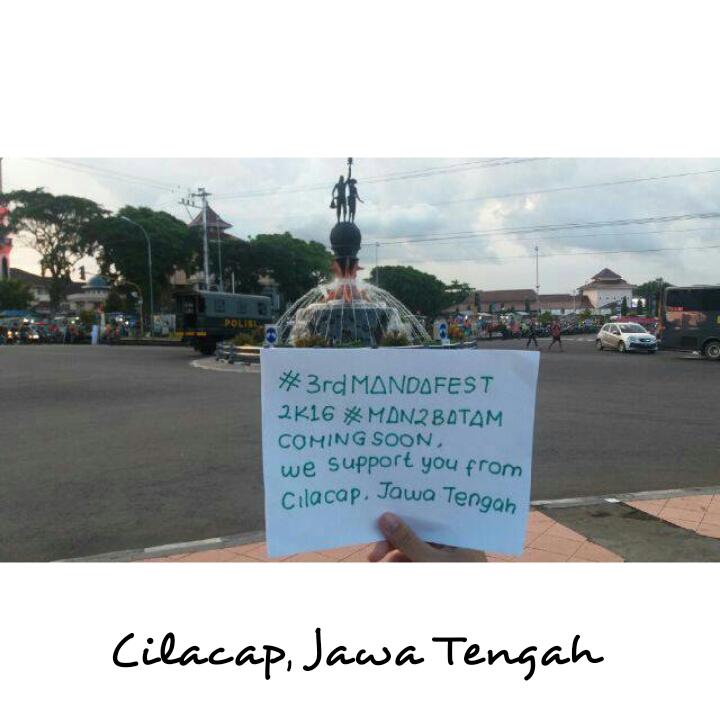 POLISI
#3rdMANDAFEST
2K16 #MAN2BATAM
COMING SOON.
we support you from
Cilacap, Jawa Tengah
Cilacap, Jawa Tengah